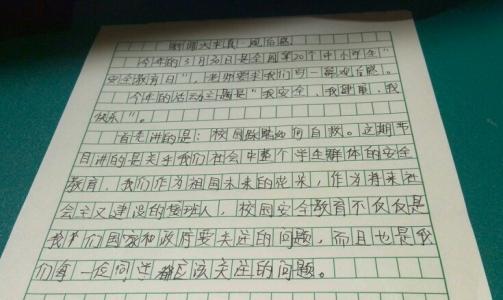 观后感
今年的3月30日是全国第20个中小学生"
安全教育日",老师要求我们写一篇观后感。
今年的活动主题是"我安全,我健康,我
快乐"。
首先讲的是:校园踩踏的自救。这期节
目讲的是关乎我们社会中整个学生群体的安全
教育,我们作为祖国未来的花朵,作为将来社
会主义建设的接班人,校园安全教育不仅仅是
我们国家和政府要关注的问题,而且也是我
们每一位同学都应该关注的问题。